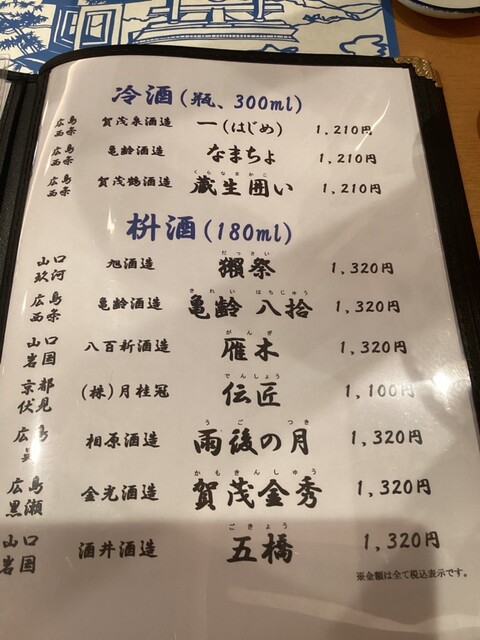 冷酒(瓶、300ml)
広島 西条 賀茂泉酒造 一(はじめ) 1,210円
広島 西条 亀齢酒造 なまちょ 1,210円
くらなまかこ
広島 西条 賀茂鶴酒造 蔵生囲い 1,210円
枡酒(180ml)
だっさい
山口 玖河 旭酒造 獺祭 1,320円
きれい はちじゅう
広島 西条 亀齢酒造 亀齢 八拾 1,320円
がんぎ
山口 岩国 八百新酒造 雁木 1,320円
でんしょう
京都 伏見 (株)月桂冠 伝匠 1,100円
うご つき
広島 呉 相原酒造 雨後の月 1,320円
かもきんしゅう
広島 黒瀬 金光酒造 賀茂金秀 1,320円
ごきょう
山口 岩国 酒井酒造 五橋 1,320円
※金額は全て税込表示です。